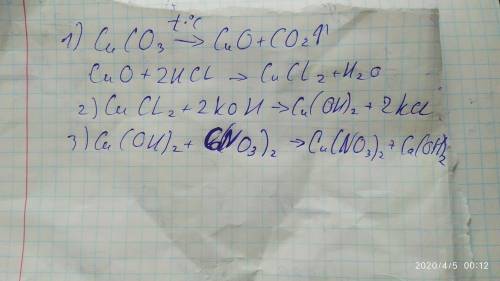 1) CuCO3 t°C→ CuO + CO2↑
CuO + 2HCl → CuCl2 + H2O
2) CuCl2 + 2KOH → Cu(OH)2 + 2KCl
3) Cu(OH)2 + Ca(NO3)2 → Cu(NO3)2 + Ca(OH)2
2020/4/5 00:12